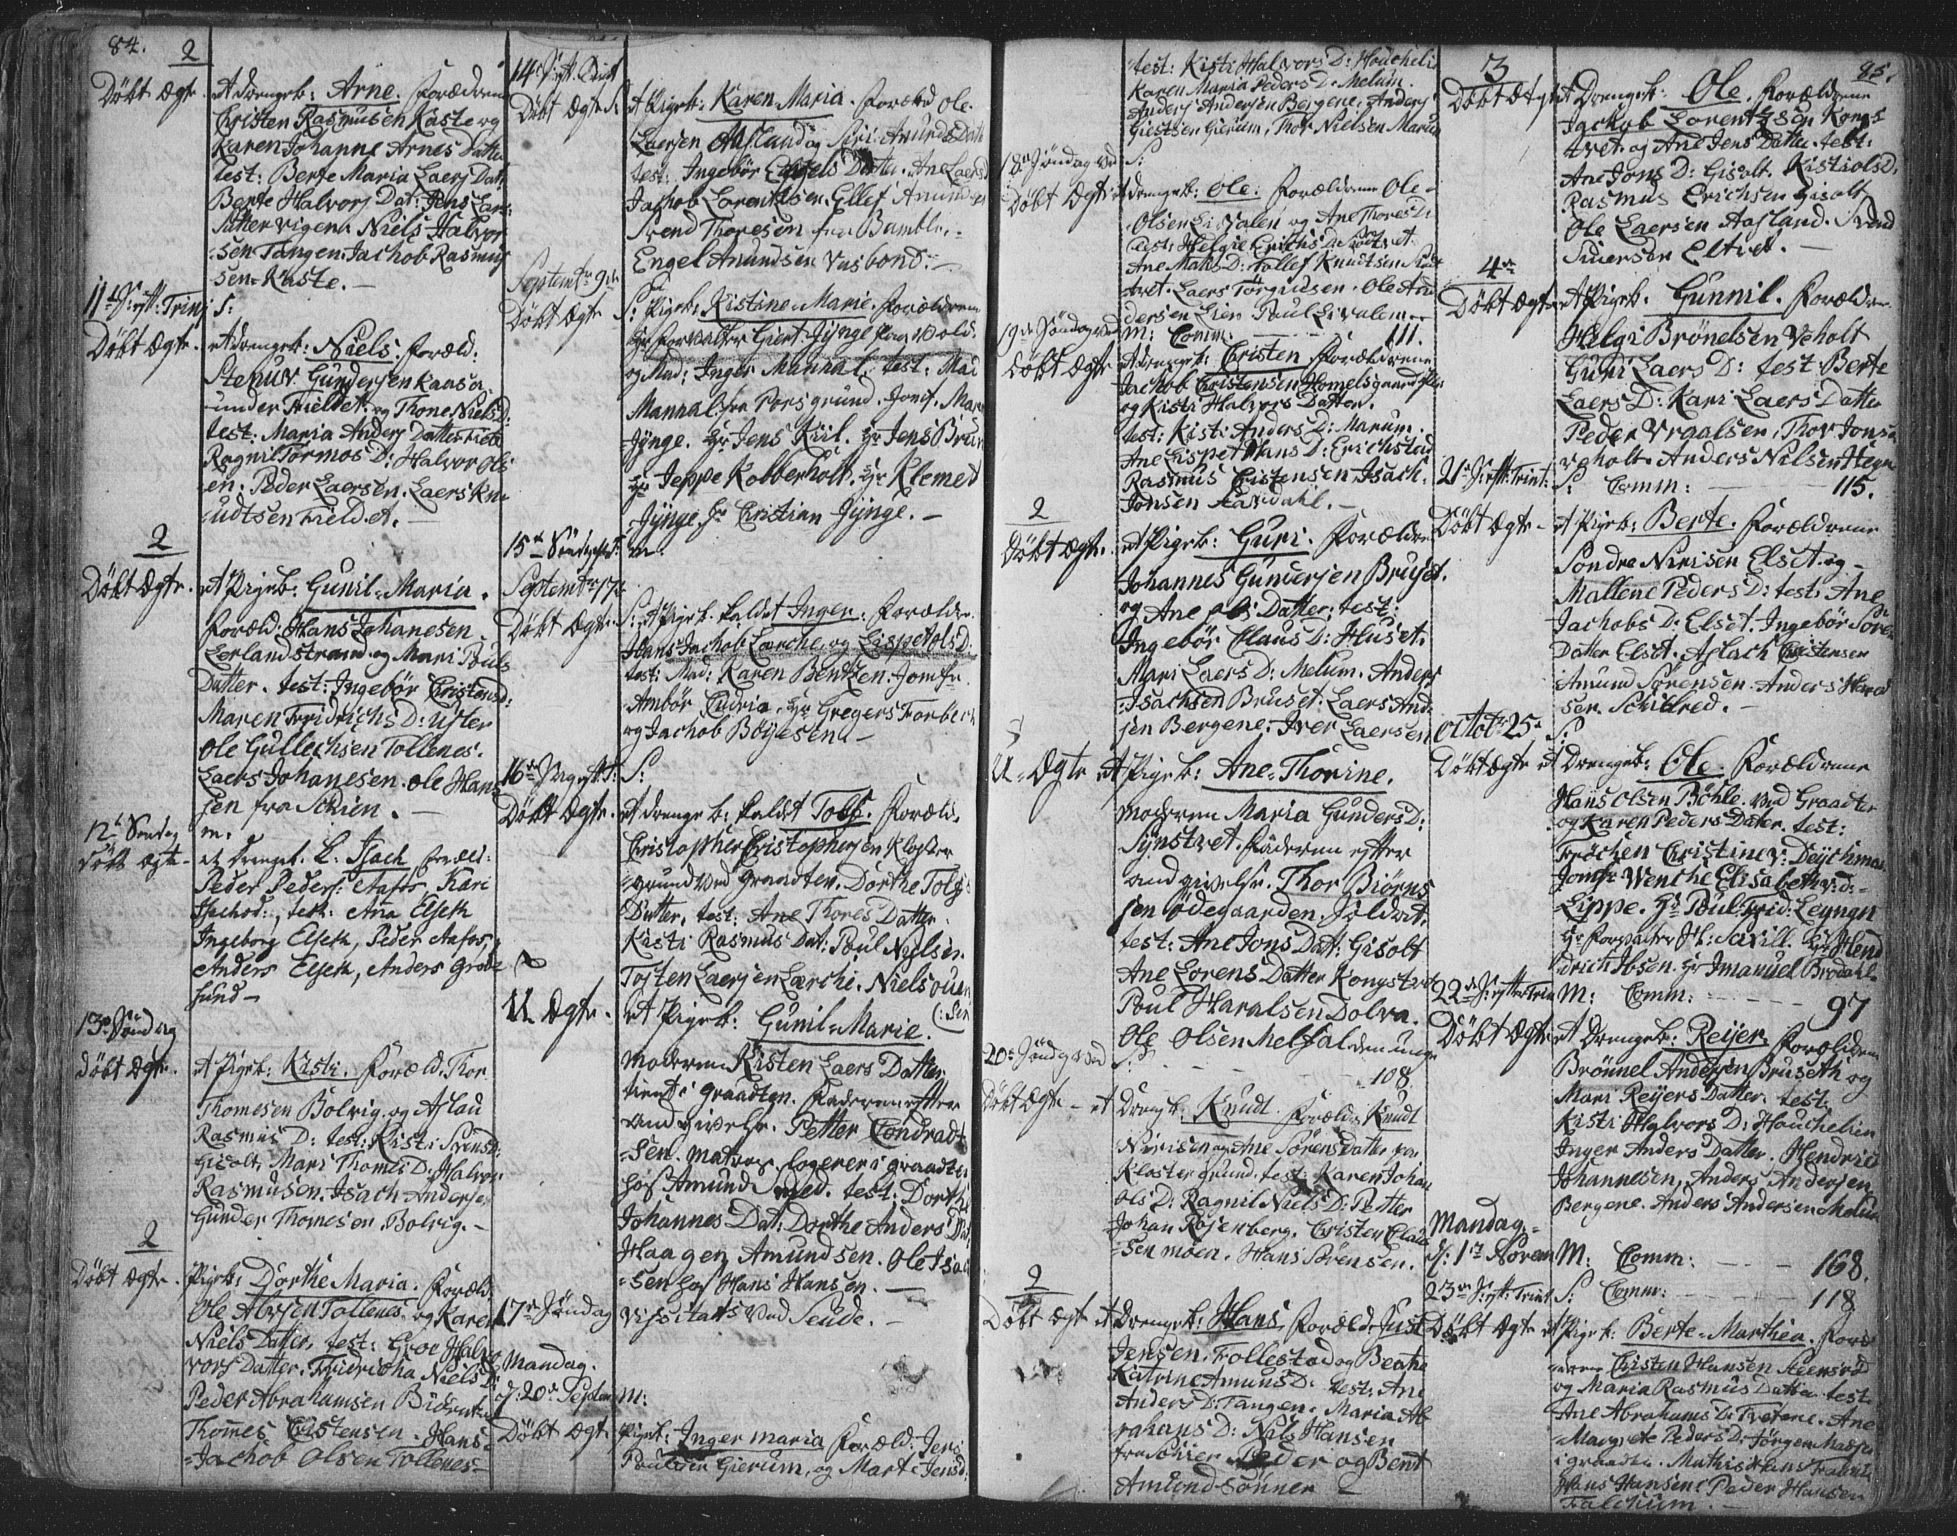 84.
2
Döbt Ægte. et drengeb: Arne. Forældrene
Cristen Rasmusen Kaste og
Karen Johanne Arnes Datter
test: Berte Maria Laers Datt
Berte Halvors Dat: Jens Lar:
Pattervigen. Niels Halvor
sen Tangen. Jachob Rasmus
sen Kaste. —
11te S: eft: Trinj S:
Döbt Ægte. et drengeb: Niels. Foræld:
Gundersen Kaasa
under og Thone Niels D:
test: Maria Anders Datter
Ragnil Tormos D: Halvor Ols
en. Peder Laersen. Laers Kn
udtsen Fieldet. —
2
Döbt Ægte. et Pigeb: Gunil-Maria.
Foræld: Hans Johanesen
Lerlandstrand og Mari Pouls
Datter. test: Ingebör Cristensd:
Maren Fridrichs D:
Ole Gullechsen Tollenes.
Laers Johanesen. Ole Hans
sen fra Schien. —
12te Sondag m.
Döbt Ægte et Drengeb. k. Isach Foræld:
Peder Peders: Aafos, Kari
test: Ana Elseth
Ingeborg Elseth, Peder Aafos,
Anders Elseth, Anders Grode
sund —
13de Söndag
Döbt Ægte. et Pigeb: Kisti. Foræld. Thor
Thomesen Bolvig og Aslau
Rasmus D: test: Kisti Svens D:
Gisolt, Mari Thomes D: Halvor
Rasmusen. Isach Andersen
Gunder Thomesen Bolvig. —
2
Döbt Ægte. Pigeb: Dorthe Maria. Foræld.
Ole Tollenes og Karen
Niels Datter. test: Groe Halv
vors Datter. Fridricha Niels D:
Peder Abrahamsen
Thomes Cristensen. Hans
Jachob Olsen Tollenes —
14de S: eft. Trinit
Döbt Ægte S: et Pigeb: Karen Maria. Foræld Ole
Laersen Aasland og Siri Amunds Datt
test: Ingebör Engels Datter. Ane Laersd
Jachob Lorentzsen. Ellef Amundsen
Svend Thoresen fra Bamble.
Engel Amundsen Vusbond. —
September 9de
Döbt Ægte S: Pigeb: Kistine Marie. Forældrene
Hr Forvalter Giert Jÿnge paa Vold
og Mad: Inger Mannal. test: Mad
Mannal fra Porsgrund. Jomf. Mar
Jÿnge. Hr Jens Kiil. Hr Jens Brun
Hr Jeppe Kobberholt. Hr Klemet
Jÿnge. Hr Cristian Jÿnge. —
15de Söndag eft T: m.
September 17de
Döbt Ægte S: et Pigeb. kaldet Inger. Foræld
Hans Jachob Larche og Lispet Ols D.
test: Mad: Karen Bentzen. Jomfr.
Ambör Hr Gregers
og Jachob Böyesen. —
16de S: S:
Döbt Ægte. et drengeb. kaldt Tolf. Foræld.
Cristopher Cristophersen Kloster
grund ved Graadten. Dorthe Tolfs
Datter. test: Ane Thores Datter
Kisti Rasmus Dat: Poul Nielsen
Tosten Laersen Larche. Niels
U Ægte. et Pigeb: Gunil-Marie.
Moderen Kisten Laers Datter
tient i Graadten. Faderen efter
andgivelse. Petter Condradt
sen matros logerer i Graadten
hos Amund Smed. test: Dorthe
Johannes Dat: Dorthe Anders Dat
Haagen Amundsen. Ole Isac
sen hos Hans Hansen. —
17de Söndag Visitatz ved Seude. —
Mandag.
d: 20de Septem M:
Döbt Ægte. Pigeb: Inger Maria Foræld: Jens
Poulsen Gierum, og Mart Jens D:
test: Kisti Halvors D: Houchelie
Karen Maria Peders D: Melum.
Anders Andersen Bergene. Anders
Giertsen Gierum. Thor Nielsen Marum
18de Söndag ved S:
Döbt Ægte et drengeb: Ole: Forældrene Ole
Olsen Livalen og Ane Thores D:
test: Helgie Erichs D:
Ane Mats D: Tollef Knudtsen
Laers Torgiusen. Ole And
dersen Lien Poul Livalen.
19de Söndag ved M: Comm: 111.
Döbt Ægte et drengeb: Cristen. Forældrene
Jachob Cristensen Homelsgaard
og Kisti Halvors Datter.
test: Kisti Anders D: Marum.
Ane Lispet Hans D: Erichstad
Rasmus Cristensen. Isach
Jonsen Fardahl. —
2
Döbt Ægte. et Pigeb: Guri. Forældre
Johannes Gundersen Bruset
og Ane Ols Datter: test:
Ingebör Claus D: Huset.
Mari Laers D: Melum. Anders
Isachsen Bruset. Laers And
sen Bergene. Iver Laersen
U-Ægte et Pigeb: Ane-Thorine.
Moderen Maria Gunders D:
Synstvet. Faderen efter
andgivelse. Thor Biörns
sen Ödegaarden
test: Ane Jons Dat: Gisolt
Ane Lorens Datter Kongstvet
Poul Haralsen Dolva.
Ole Olsen Melfal den unge
20de Söndag ved S: 108.
Döbt Ægte — et Drengb. Knudt. Foræld: Knudt
Nirisen og Ane Sörens Datter fra
Klostergrund. test: Karen Johan
Ols D: Ragnil Niels D: Petter
Johan Rosenberg. Cristen Claus
sen Moen. Hans Sörensen.
2
Döbt Ægt et Drengeb: Hans. Foræld: Just
Jensen. Follestad og Beathe
Katrine Amuns D: test: Ane
Anders D: Tangen. Maria Ab
rahams D: Nils Hansen
fra Schien. Peder og Bent
Amund Sönner —
85.
3
Döbt Ægte et Drengeb: Ole. Forældrene
Jachob Lorentzsen Kongs
tvet og Ane Jens Datter. test:
Ane Jons D: Gisolt. Kisti Ols D.
Rasmus Erichsen Gisolt
Ole Laersen Aasland. Svend
Siversen Eltvet. —
4de
Döbt Ægte et Pigeb. Gunnil. Foræld
Helgi Brönelsen Veholt
Guri Laers D: test Berte
Laers D: Kari Laers Datter
Peder Vraalsen. Thor Jonse
Veholt. Anders Nilsen
21de S: eft: Trinit: S: Comm: 115.
Döbt Ægte — et Pigeb: Berte. Forældrene
Sondre Nirisen Elset og
Mallene Peders D: test: Ane
Jachobs D: Elset. Ingebör Sören
Datter Elset. Aslach Cristensen
Amund Sörensen. Anders
Schilred. —
Octob: 25de S:
Döbt Ægte et Drengeb: Ole. Forældrene
Hans Olsen Böhle. ved Graadten
og Karen Peders Dater. test:
Fröchen Cristine v: Deÿchman
Jomfr Wenche Elisabeth v. d:
Lippe. Hr Poul Frid: Leyngn
Hr Forvalter H: Savill. Hr Hend
drich Ibsen. Hr Imanuel Brodahl
22de S: efter Trin M: Comm: 97
Döbt Ægte et Drengeb: Reijer. Forældren
Brönnel Andersen Bruseth og
Mari Reijers Datter. test:
Kisti Halvors D: Houchelien
Inger Anders Datter. Hendric
Johannesen, Anders Andersen
Bergene. Anders Andersen Melum
Mandag
d: 1te Novem M: Comm: 168.
23de S: eft: Trinit S: Comm: 118
Döbt Ægte et Pigeb: Berte-Marthea. For
Cristen Hansen
og Maria Rasmus Datter. test
Ane Abrahams D: Tvetene. Ane
Margrete Peders D: Jörgen Madsen
i Graadten. Mathis
Hans Hansen. Peder Hansen
Falchum. —